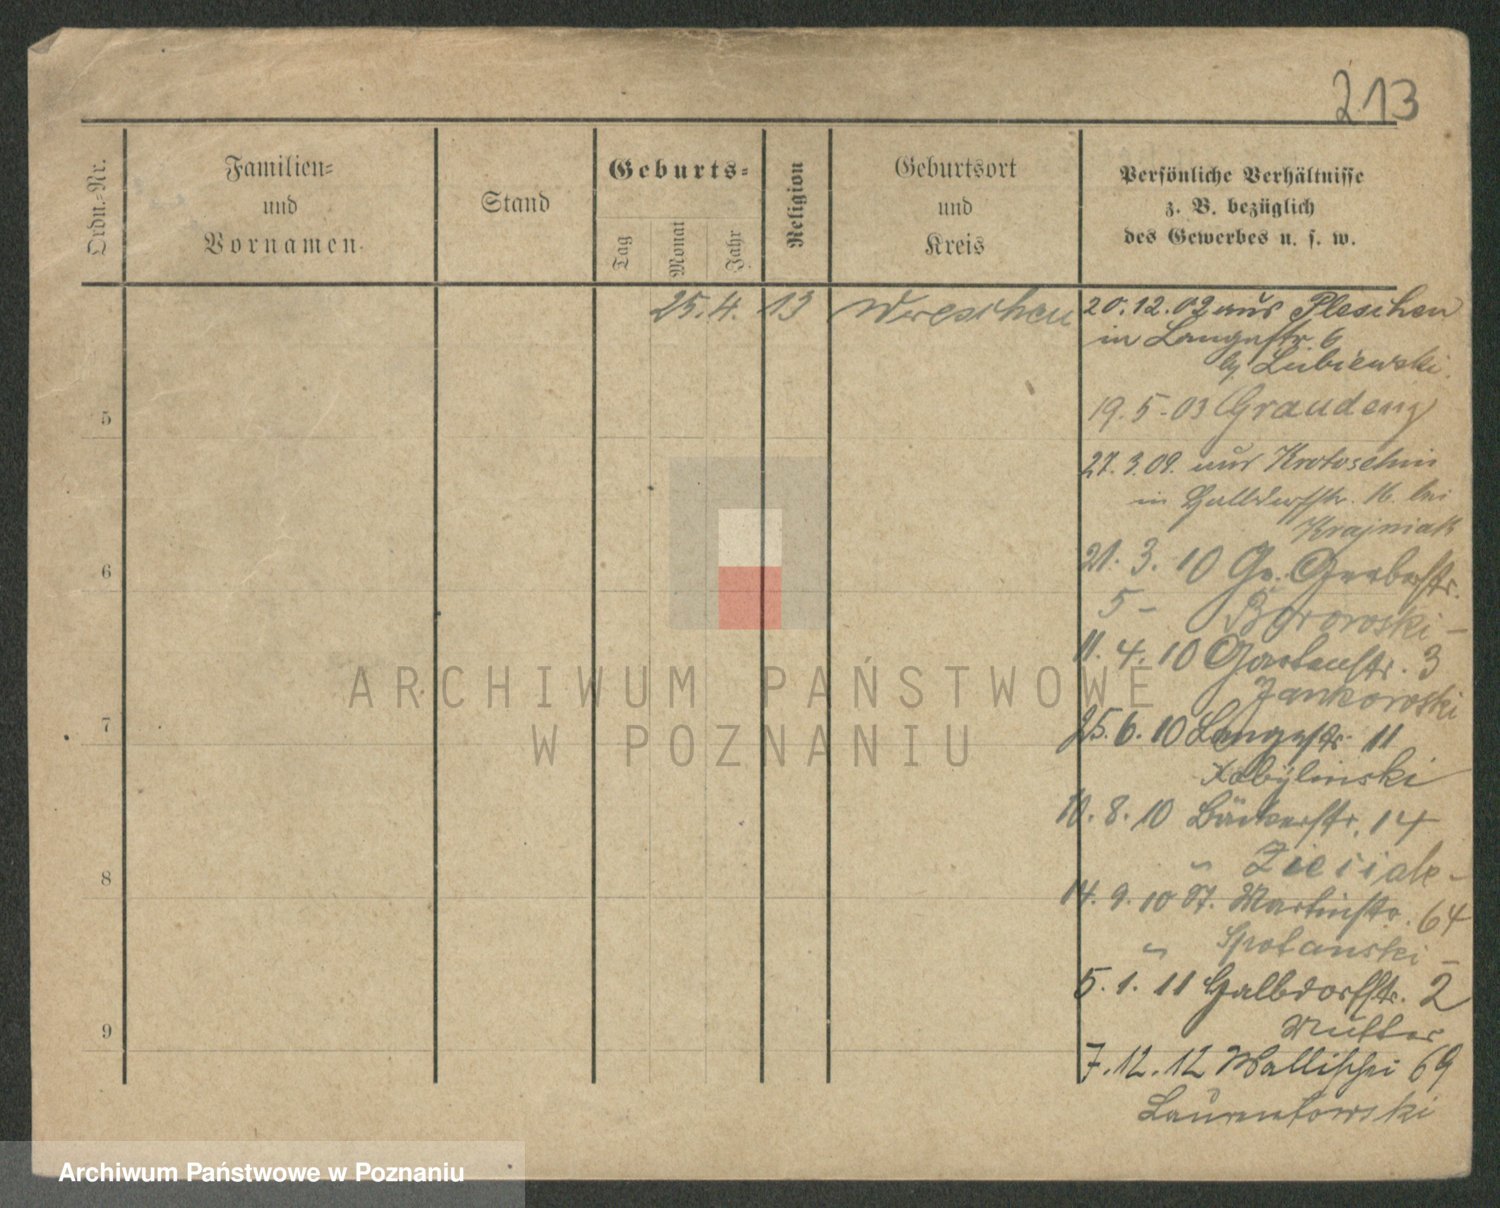 213
Ordn.-Nr.
Familien-
und
Vornamen.
Stand
Geburts-
Tag
Monat
Jahr
Religion
Geburtsort
und
Kreis
Persönliche Verhältnisse
z. B. bezüglich
des Gewerbes u. s. w.
25. 4. 13 Wreschen
20. 12. 02 aus Pleschen
in Langestr. 6
bj Lubiewski.
5
19. 5. 03 Graudenz
27. 3. 09. aus Krotoschin
in Halbdorfstr. 16. bei
Krajniak
6
21. 3. 10 Gr. Gerberstr.
5 –
11. 4. 10 Gartenstr. 3
Jankowski
7
25. 6. 10 Langestr. 11
Kobylinski
10. 8. 10 Bäckerstr. 14
8
14. 9. 10 St. Martinstr. 64
5. 1. 11 Halbdorfstr. 2
Mutter
9
7. 12. 12 Wallischei 69
Laurentowski
ARCHIWUM PAŃSTWOWE
W POZNANIU
Archiwum Państwowe w Poznaniu